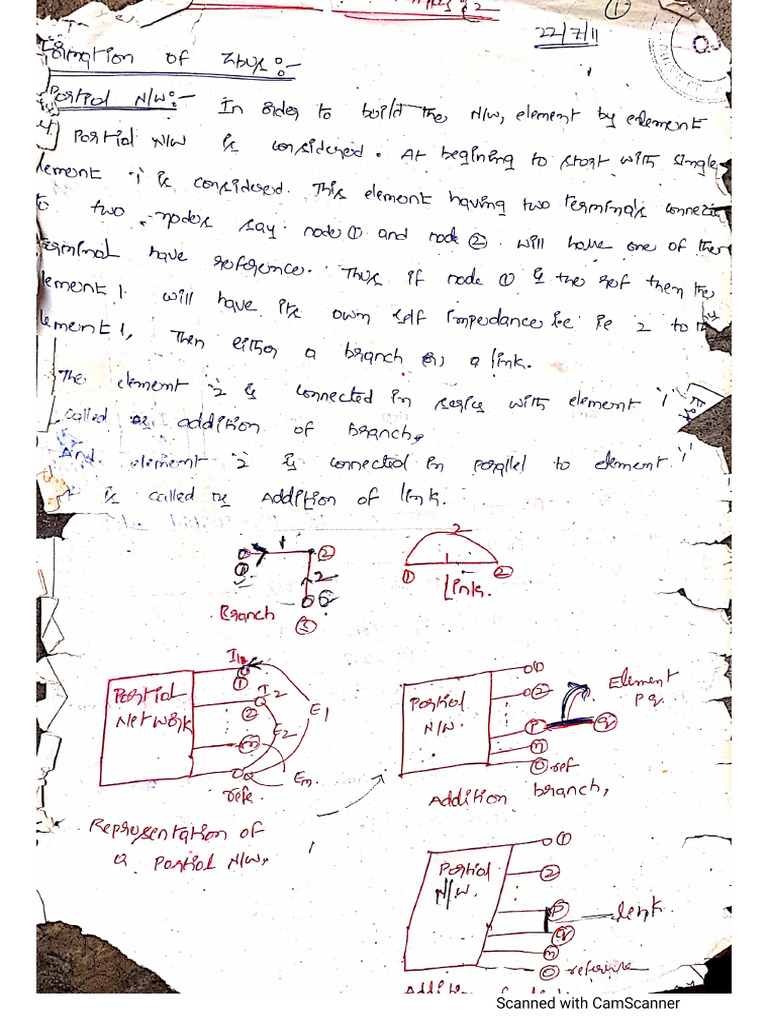 ①
22/7/11
Formation of Zbus :-
Partial N/W :- In order to build the N/W, element by element
Partial N/W is considered. At begining to start with single
element 1 is considered. This element having two terminals connected
to two nodes say node ① and node ② will have one of the
terminal have reference. Thus if node ① is the ref then the
element 1 will have its own self impedance
element 1, Then either a branch (or) a link.
The element '2' is connected in series with element '1'
called as addition of branch.
And element '2' is connected in parallel to element '1'
it is called as Addition of link.
1
2
①
②
2
③
Branch
2
1
①
②
Link.
Partial
Network
I1
①
I2
②
m
E1
E2
Em
refe.
Representation of
a Partial N/W.
Partial
N/W.
①
②
p
q
n
0 ref
Element
pq
Addition branch,
Partial
N/W.
①
②
p
q
n
0 reference
link.
Scanned with CamScanner